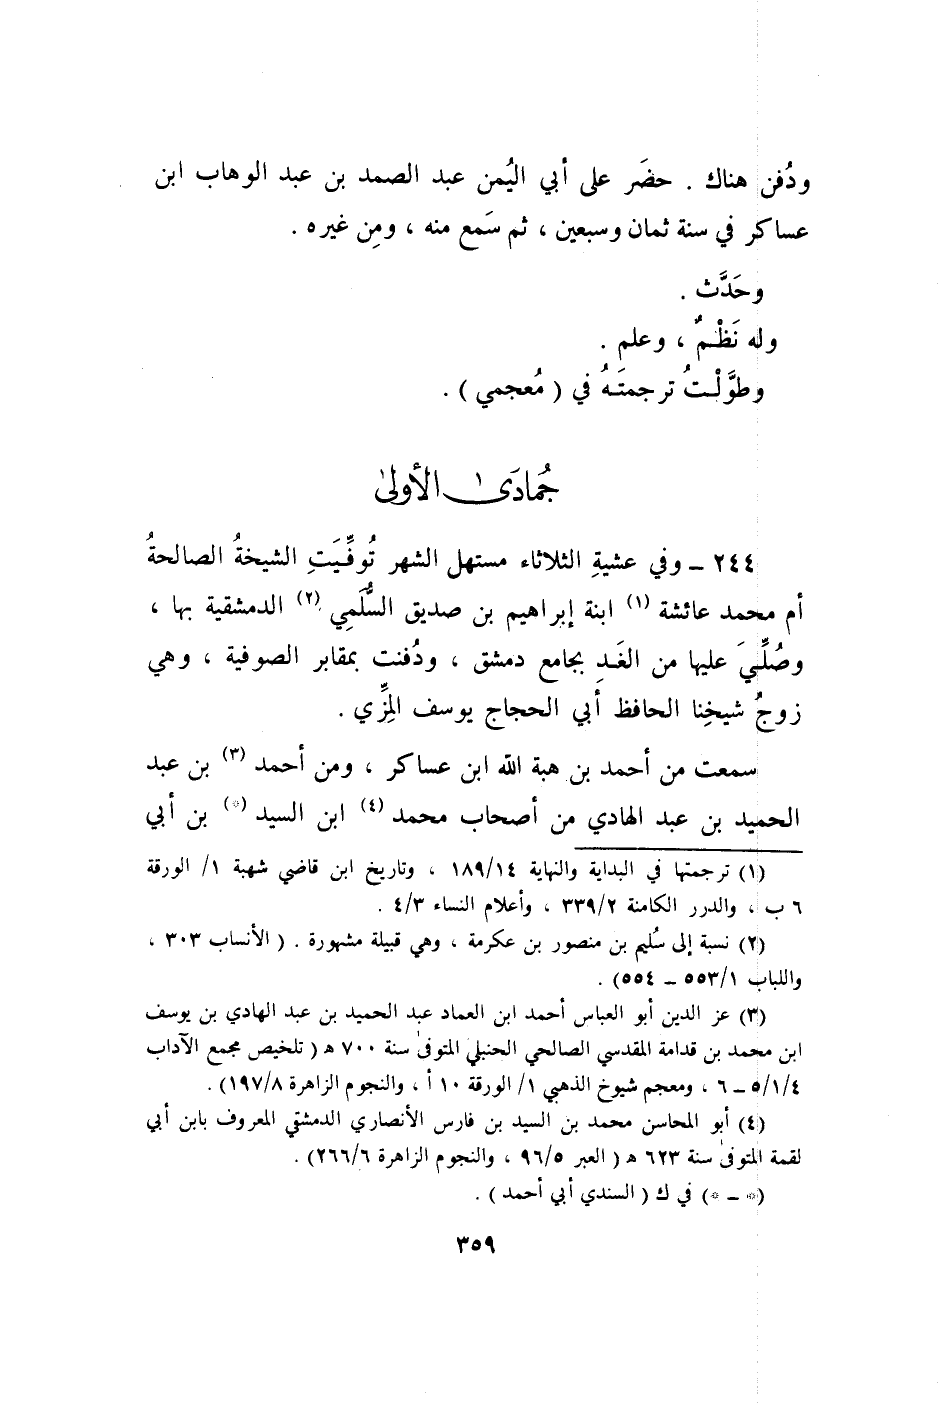 ودُفن هناك . حضَر على أبي اليُمن عبد الصمد بن عبد الوهاب ابن
عساكر في سنة ثمان وسبعين ، ثم سَمع منه ، ومِن غيره .
وحَدَّث .
وله نَظْمٌ ، وعلم .
وطوَّلْتُ ترجمتَهُ في ( مُعجمي ) .
جُمادَى الأولىٰ
٢٤٤ – وفي عشيةِ الثلاثاء مستهل الشهر تُوفِّيَتِ الشيخةُ الصالحةُ
أم محمد عائشة (١) ابنة إبراهيم بن صديق السُّلَمِي (٢) الدمشقية بها ،
وصُلِّيَ عليها من الغَدِ بجامع دمشق ، ودُفنت بمقابر الصوفية ، وهي
زوجُ شيخِنا الحافظ أبي الحجاج يوسف المِزِّي .
سمعت من أحمد بن هبة الله ابن عساكر ، ومن أحمد (٣) بن عبد
الحميد بن عبد الهادي من أصحاب محمد (٤) ابن السيد (*) بن أبي
(١) ترجمتها في البداية والنهاية ١٨٩/١٤ ، وتاريخ ابن قاضي شهبة ١/ الورقة
٦ ب ، والدرر الكامنة ٣٣٩/٢ ، وأعلام النساء ٤/٣ .
(٢) نسبة إلى سُليم بن منصور بن عكرمة ، وهي قبيلة مشهورة . ( الأنساب ٣٠٣ ،
واللباب ٥٥٣/١ – ٥٥٤) .
(٣) عز الدين أبو العباس أحمد ابن العماد عبد الحميد بن عبد الهادي بن يوسف
ابن محمد بن قدامة المقدسي الصالحي الحنبلي المتوفىٰ سنة ٧٠٠ ه ( تلخيص مجمع الآداب
٥/١/٤ – ٦ ، ومعجم شيوخ الذهبي ١/ الورقة ١٠ أ ، والنجوم الزاهرة ١٩٧/٨) .
(٤) أبو المحاسن محمد بن السيد بن فارس الأنصاري الدمشقي المعروف بابن أبي
لقمة المتوفىٰ سنة ٦٢٣ ه ( العبر ٩٦/٥ ، والنجوم الزاهرة ٢٦٦/٦) .
(* – *) في ك ( السندي أبي أحمد ) .
٣٥٩